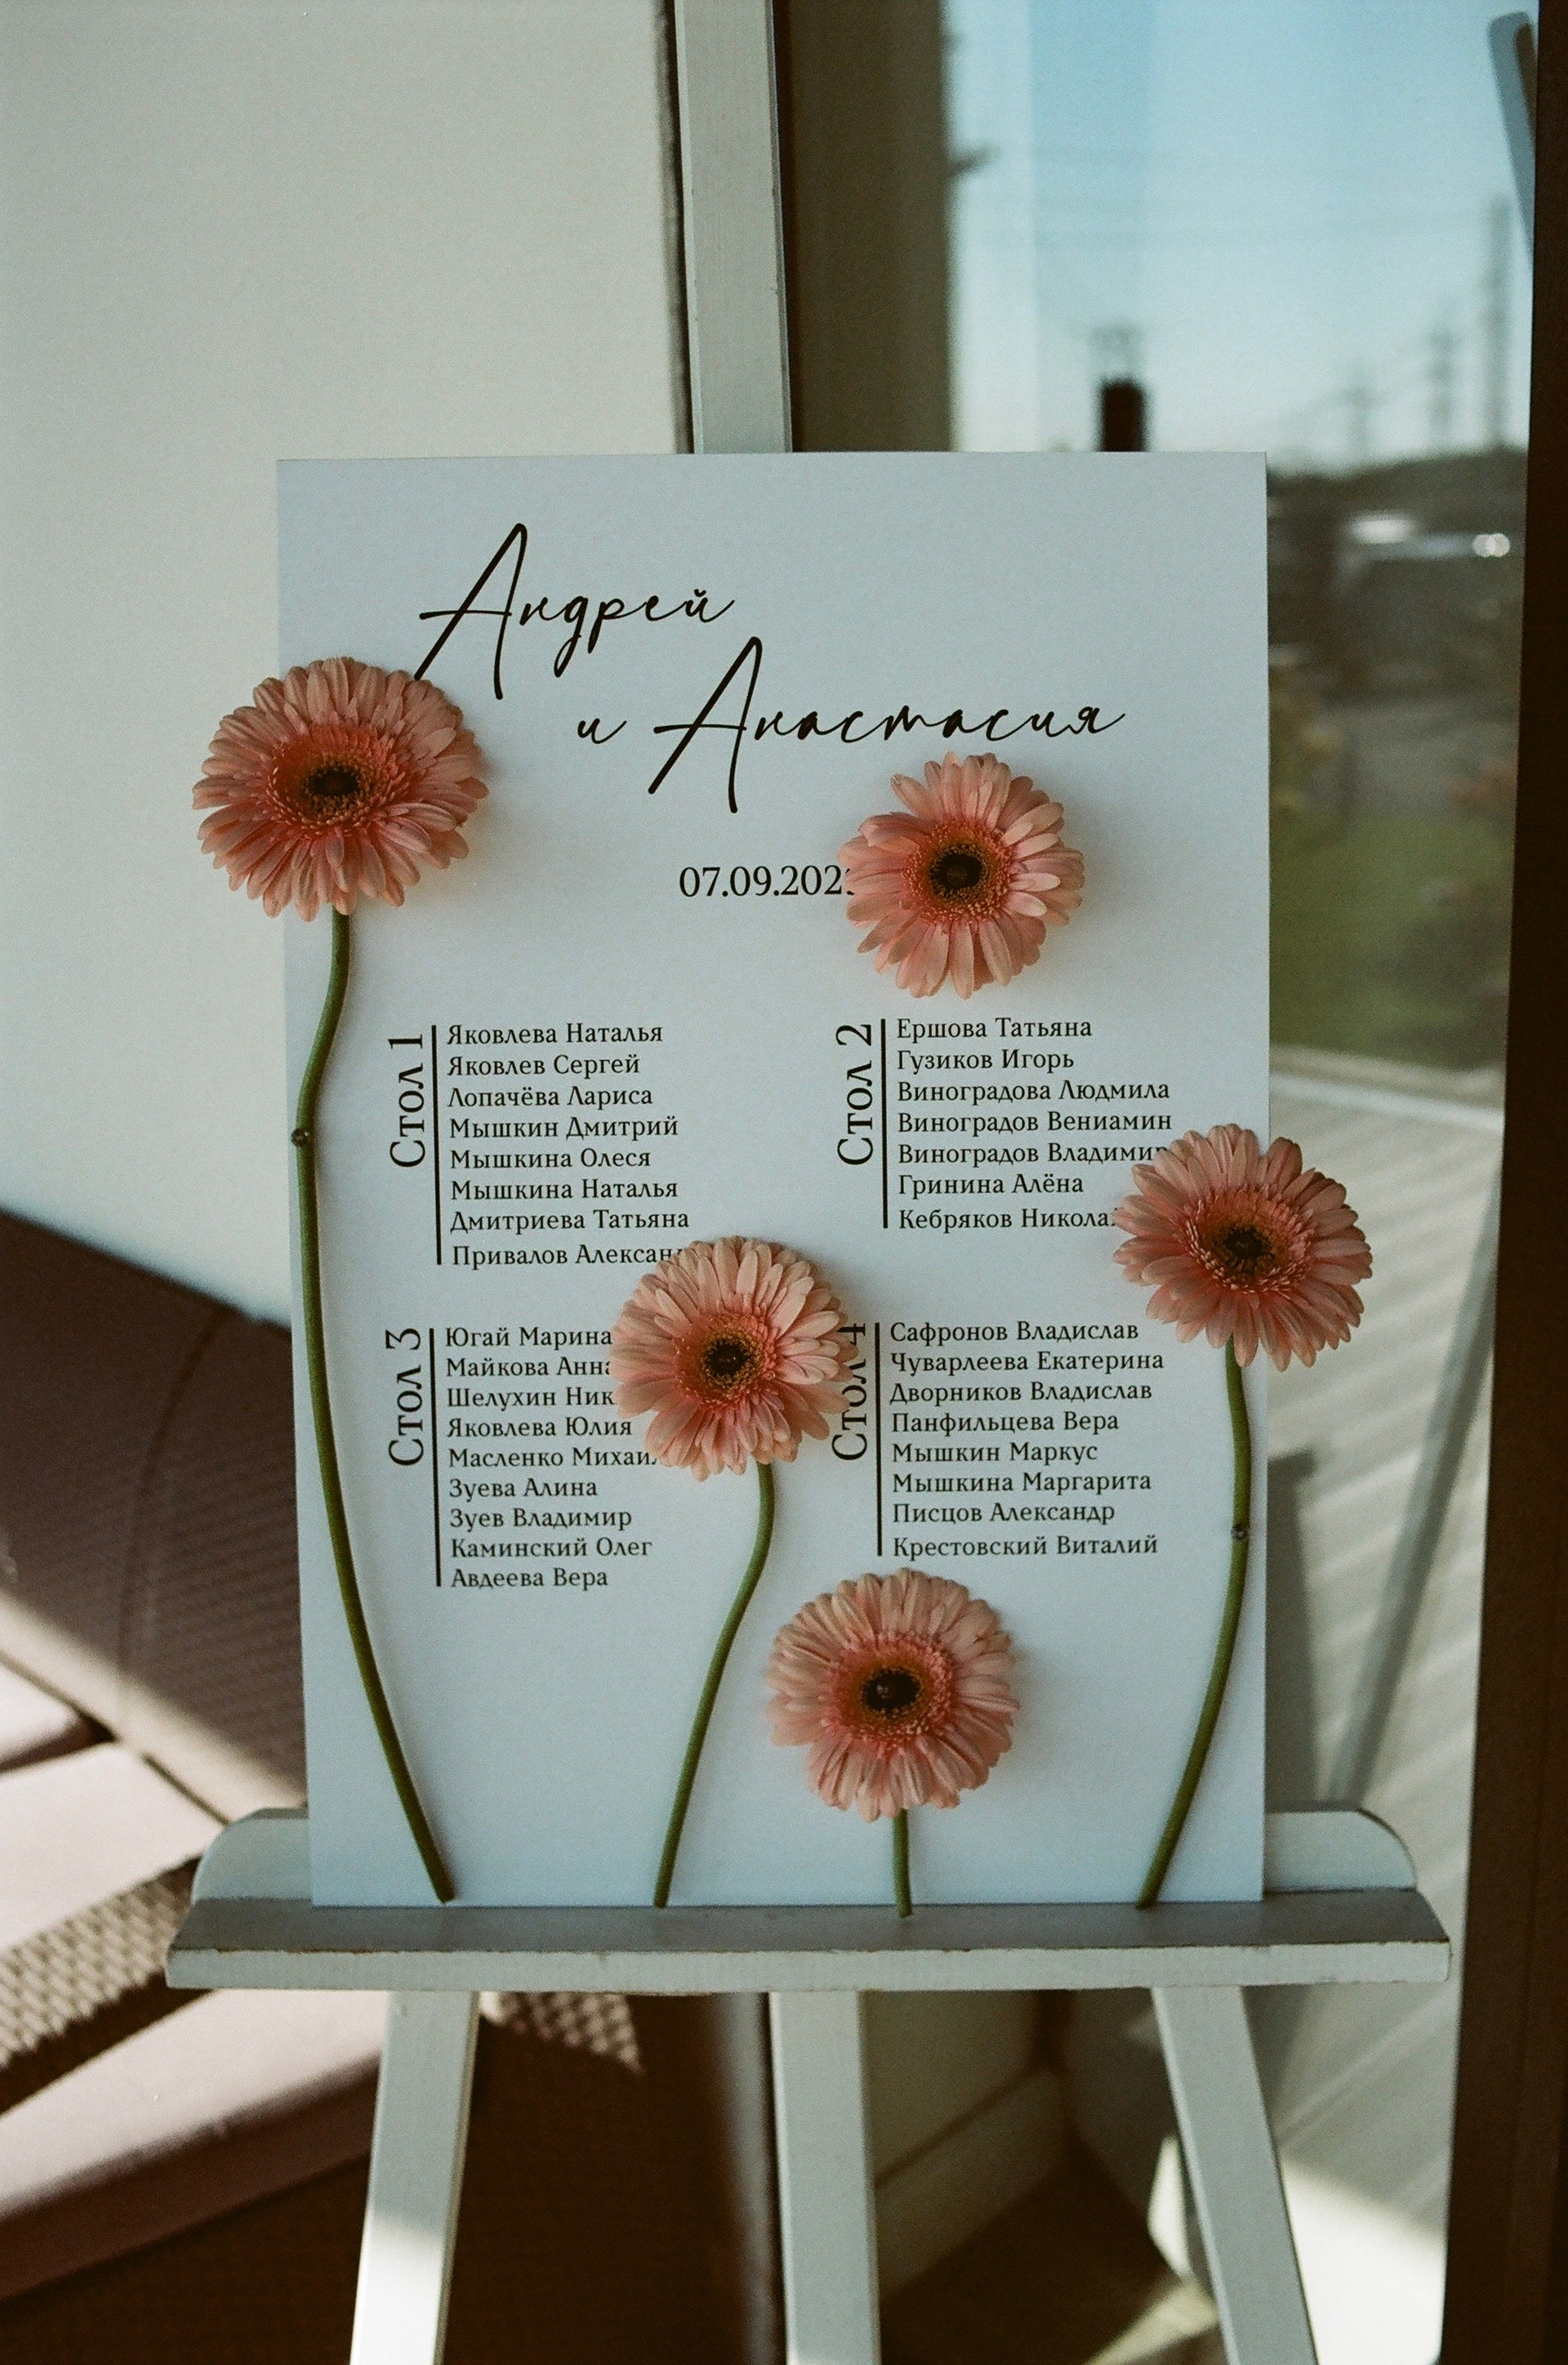 Андрей
и Анастасия
07.09.202
Стол 1
Яковлева Наталья
Яковлев Сергей
Лопачёва Лариса
Мышкин Дмитрий
Мышкина Олеся
Мышкина Наталья
Дмитриева Татьяна
Привалов
Стол 2
Ершова Татьяна
Гузиков Игорь
Виноградова Людмила
Виноградов Вениамин
Виноградов Владимир
Гринина Алёна
Кебряков
Стол 3
Югай Марина
Майкова Анна
Шелухин
Яковлева Юлия
Масленко Михаил
Зуева Алина
Зуев Владимир
Каминский Олег
Авдеева Вера
Стол 4
Сафронов Владислав
Чуварлеева Екатерина
Дворников Владислав
Панфильцева Вера
Мышкин Маркус
Мышкина Маргарита
Писцов Александр
Крестовский Виталий